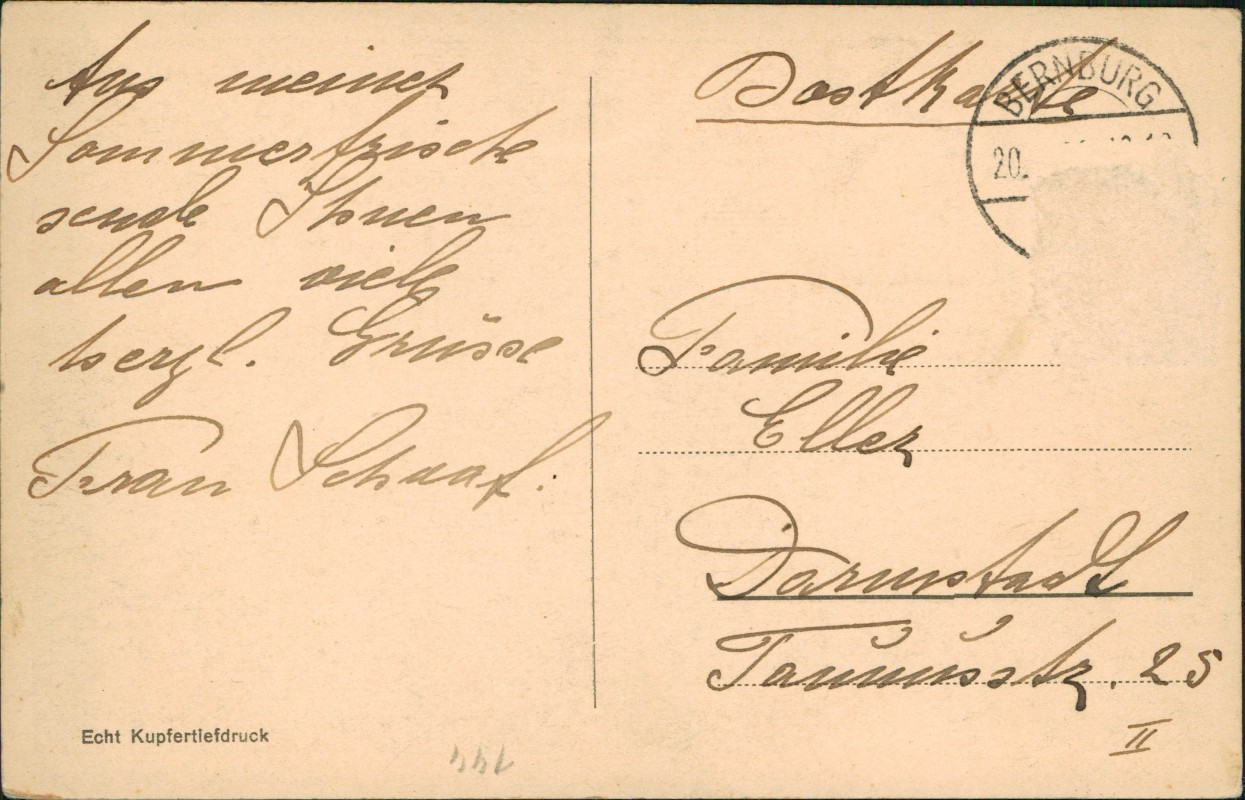 Aus meiner
Sommerfrische
sende Ihnen
allen viele
herzl. Grüsse
Frau Schaaf.
Echt Kupfertiefdruck
Postkarte
BERNBURG
20.
Familie
Eller
Darmstadt
Taunusstr. 25
II